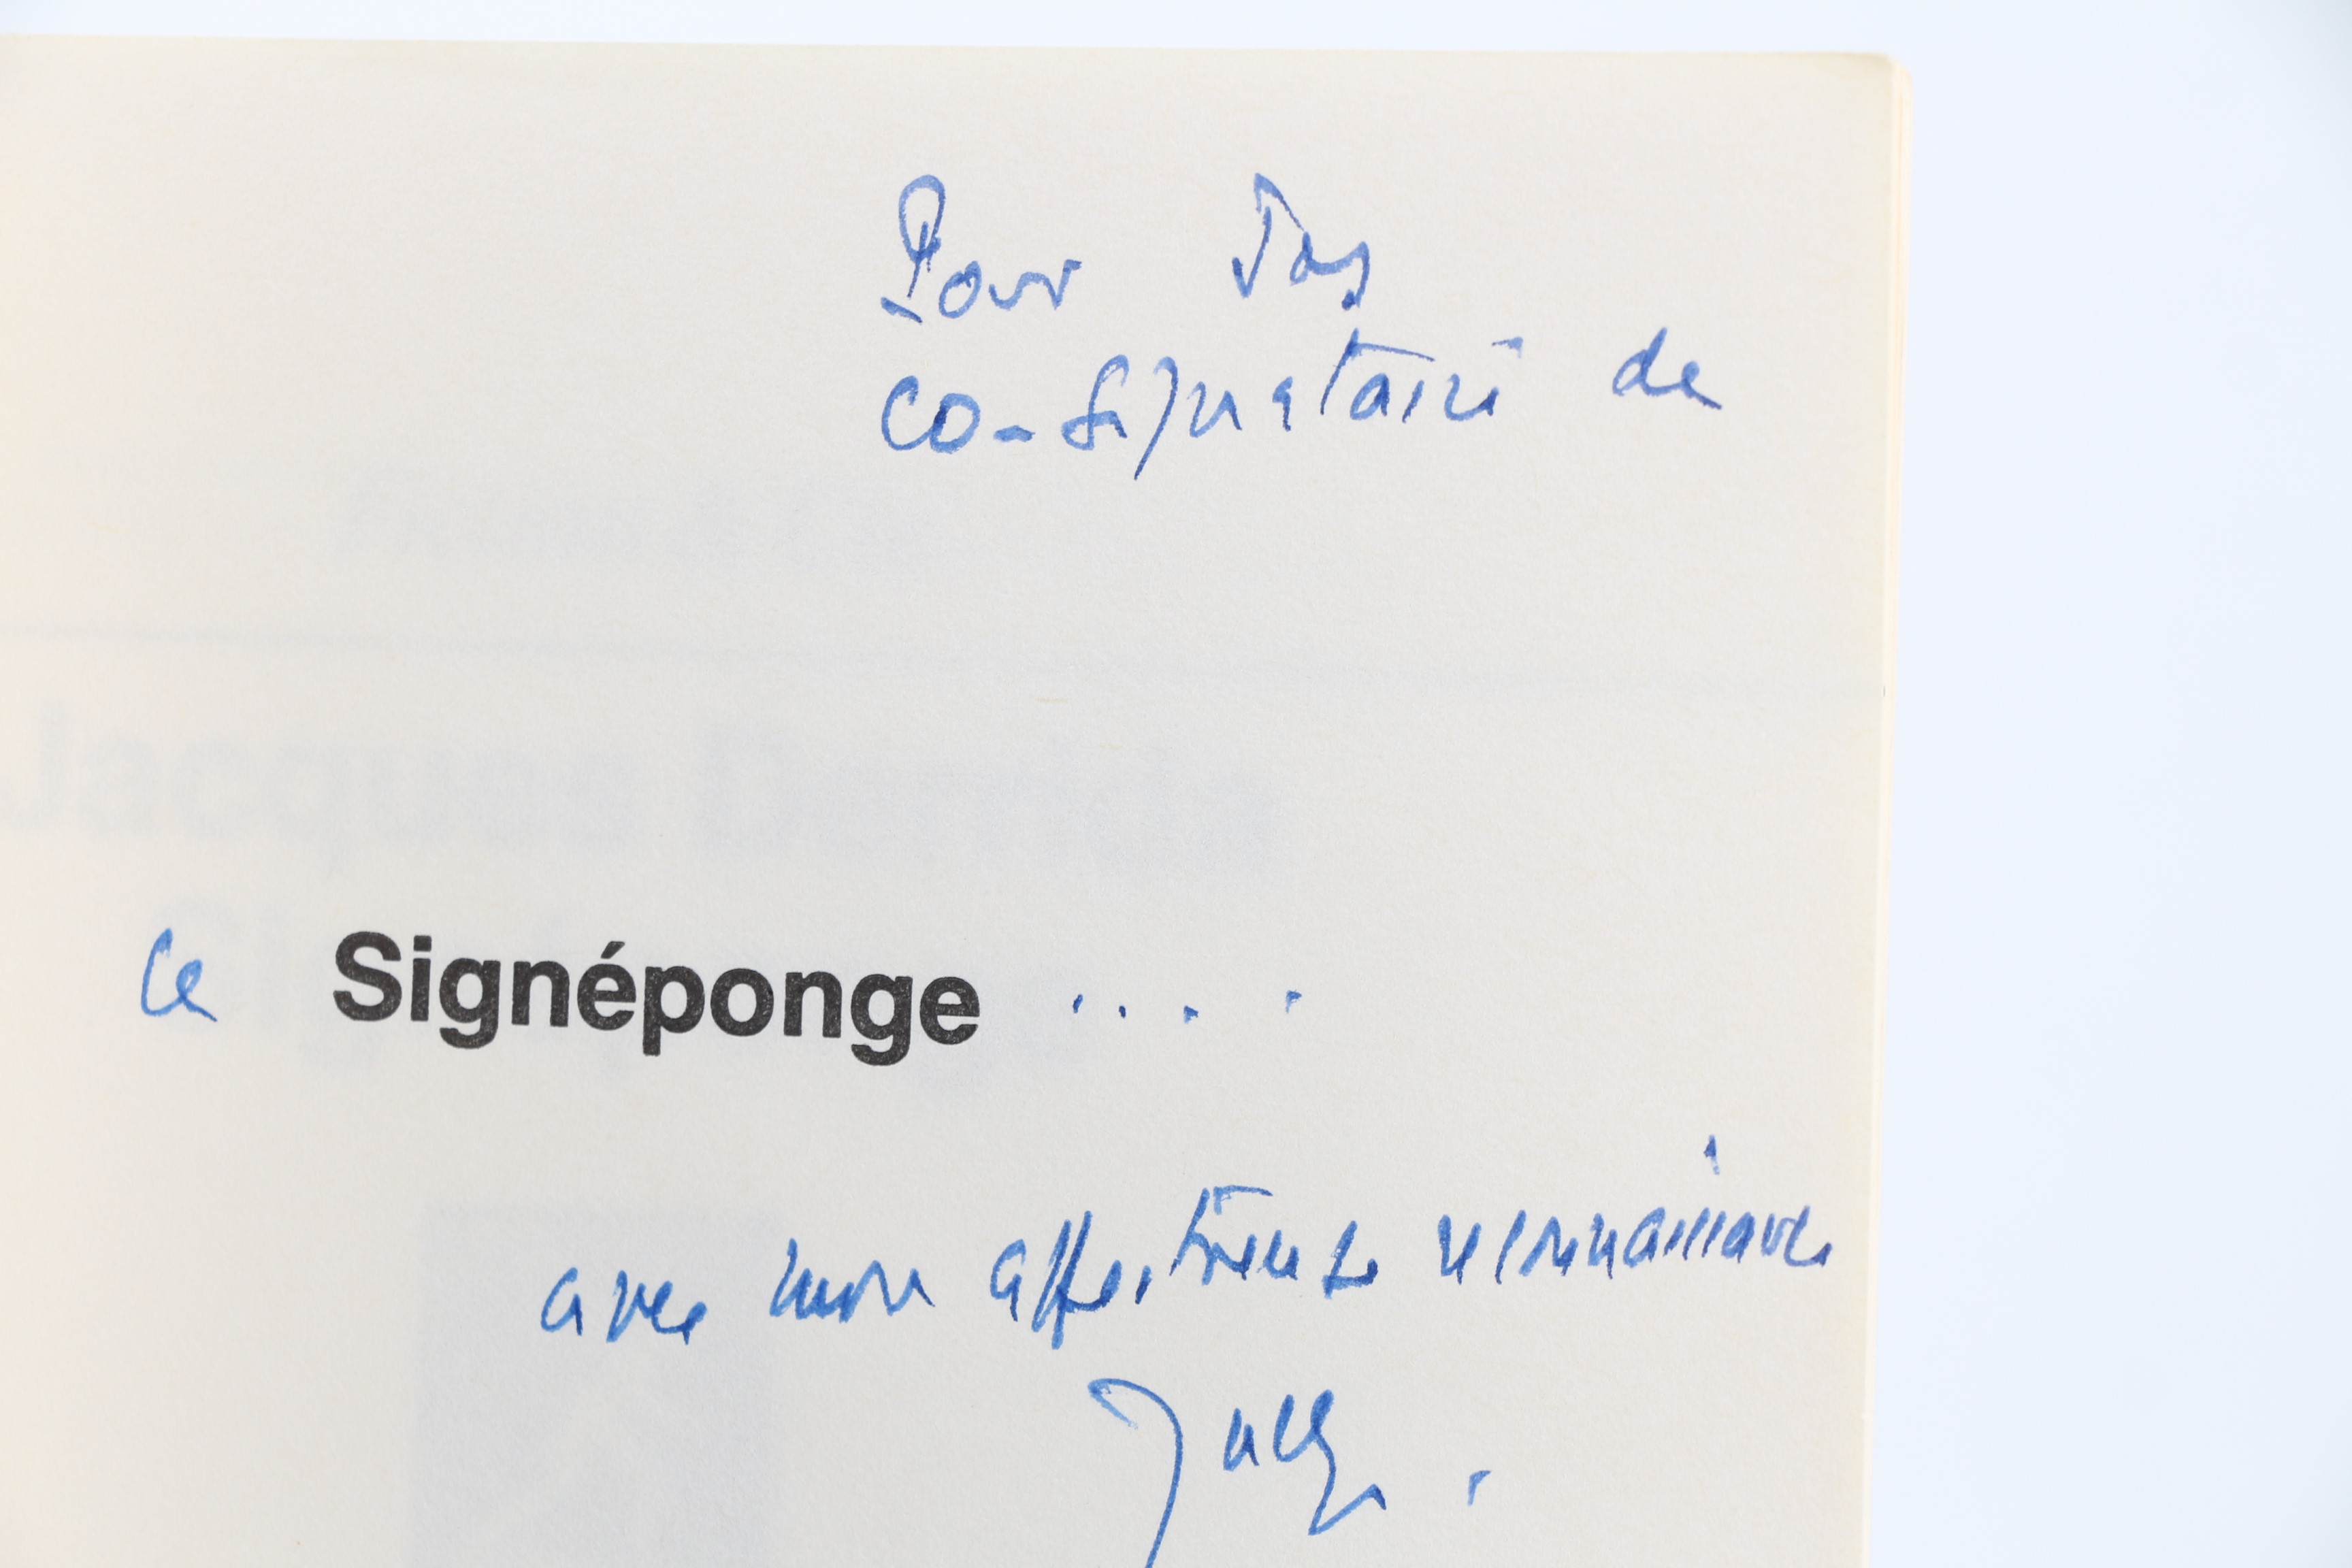 Pour Jos
co-signataire de
ce Signéponge . . . .
avec mon affectueuse reconnaissance
Jacques.